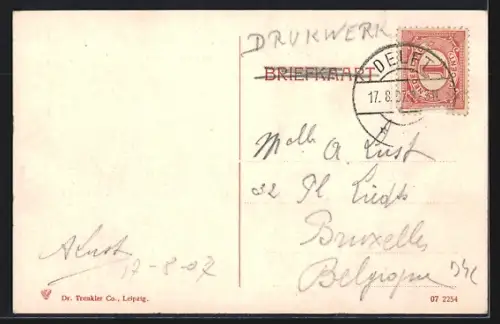 DRUKWERK
BRIEFKAART
DELFT
17.8.07
1
Melle A. Lust
22 Pl Liedts
Bruxelles
Belgique
A Lust
17-8-07
Dr. Trenkler Co., Leipzig.
07 2254